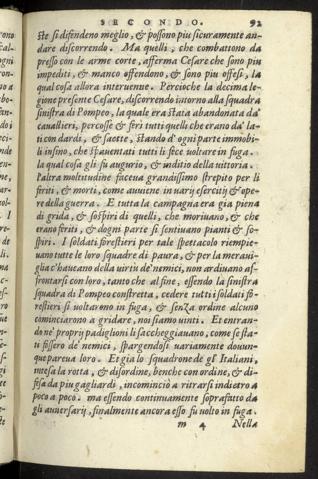 SECONDO. 92
ste si difendeno meglio, & possono piu sicuramente an-
dare discorrendo. Ma quelli, che combattono da
presso con le arme corte, afferma Cesare che sono piu
impediti, & manco offendono, & sono piu offesi, la
qual cosa allora interuenne. Percioche la decima le-
gione presente Cesare, discorrendo intorno alla squadra
sinistra di Pompeo, la quale era stata abandonata da'
cauallieri, percosse & ferì tutti quelli che erano da' la-
ti con dardi, & saette, stando d'ogni parte immobi-
li insino, che spauentati tutti li fece uoltare in fuga.
la qual cosa gli fu augurio, & inditio della uittoria.
l'altra moltitudine faceua grandissimo strepito per li
feriti, & morti, come auuiene in varij eserciti & ope-
re della guerra. E tutta la campagna era gia piena
di grida, & sospiri di quelli, che moriuano, & che
erano feriti, & dogni parte si sentiuano pianti & so-
spiri. I soldati forestieri per tale spettacolo riempie-
uano tutte le loro squadre di paura, & per la meraui-
glia c'haueano della uirtù de' nemici, non ardiuano af-
frontarsi con loro, tanto che al fine, essendo la sinistra
squadra di Pompeo constretta, cedere tutti i soldati fo-
restieri si uoltarono in fuga, & senza ordine alcuno
cominciarono a gridare, noi siamo uinti. Et entran-
do ne' proprij padiglioni li saccheggiauano, come se sta-
ti fossero de' nemici, spargendosi uariamente douun-
que pareua loro. Et gia lo squadrone de gl' Italiani,
intesa la rotta, & disordine, benche con ordine, & di-
fesa da piu gagliardi, incominciò a ritrarsi indietro a
poco a poco. ma essendo continuamente soprafatto da
gli auuersarij, finalmente ancora esso fu uolto in fuga.
m 4 Nella